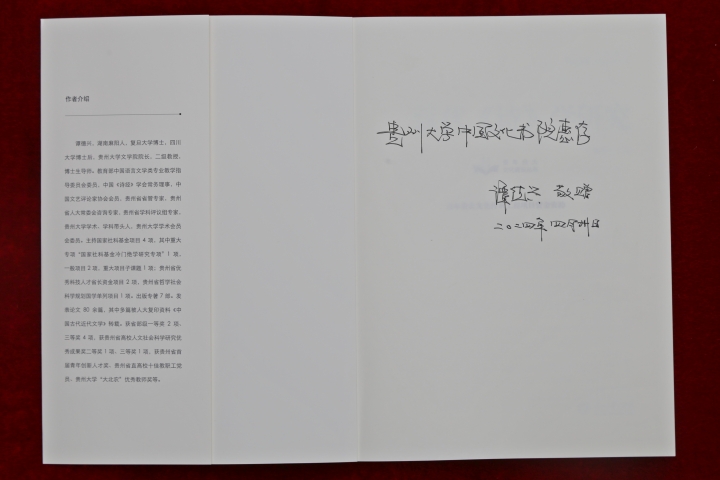 作者介绍
谭德兴，湖南衡阳人，复旦大学博士，四川
大学博士后，贵州大学文学院院长，二级教授，
博士生导师。教育部中国语言文学类专业教学指
导委员会委员，中国《诗经》学会常务理事，中
国文艺评论家协会会员，贵州省省管专家，贵州
省人大常委会咨询专家，贵州省学科评议组专家，
贵州大学学术、学科带头人，贵州大学学术委员
会委员。主持国家社科基金项目 4 项，其中重大
专项“国家社科基金冷门绝学研究专项”1 项，
一般项目 2 项，重大项目子课题 1 项；贵州省优
秀科技人才省长资金项目 2 项，贵州省哲学社会
科学规划国学单列项目 1 项。出版专著 7 部。发
表论文 80 余篇，其中多篇被人大复印资料《中
国古代近代文学》转载。获省部级一等奖 2 项，
三等奖 4 项，获贵州省高校人文社会科学研究优
秀成果奖二等奖 1 项、三等奖 1 项，获贵州省首
届青年创新人才奖、贵州省直属高校十佳教职工党
员、贵州大学 优秀教师奖等。
贵州大学中国文化书院惠存
谭德兴 敬赠
二〇二四年四月廿日